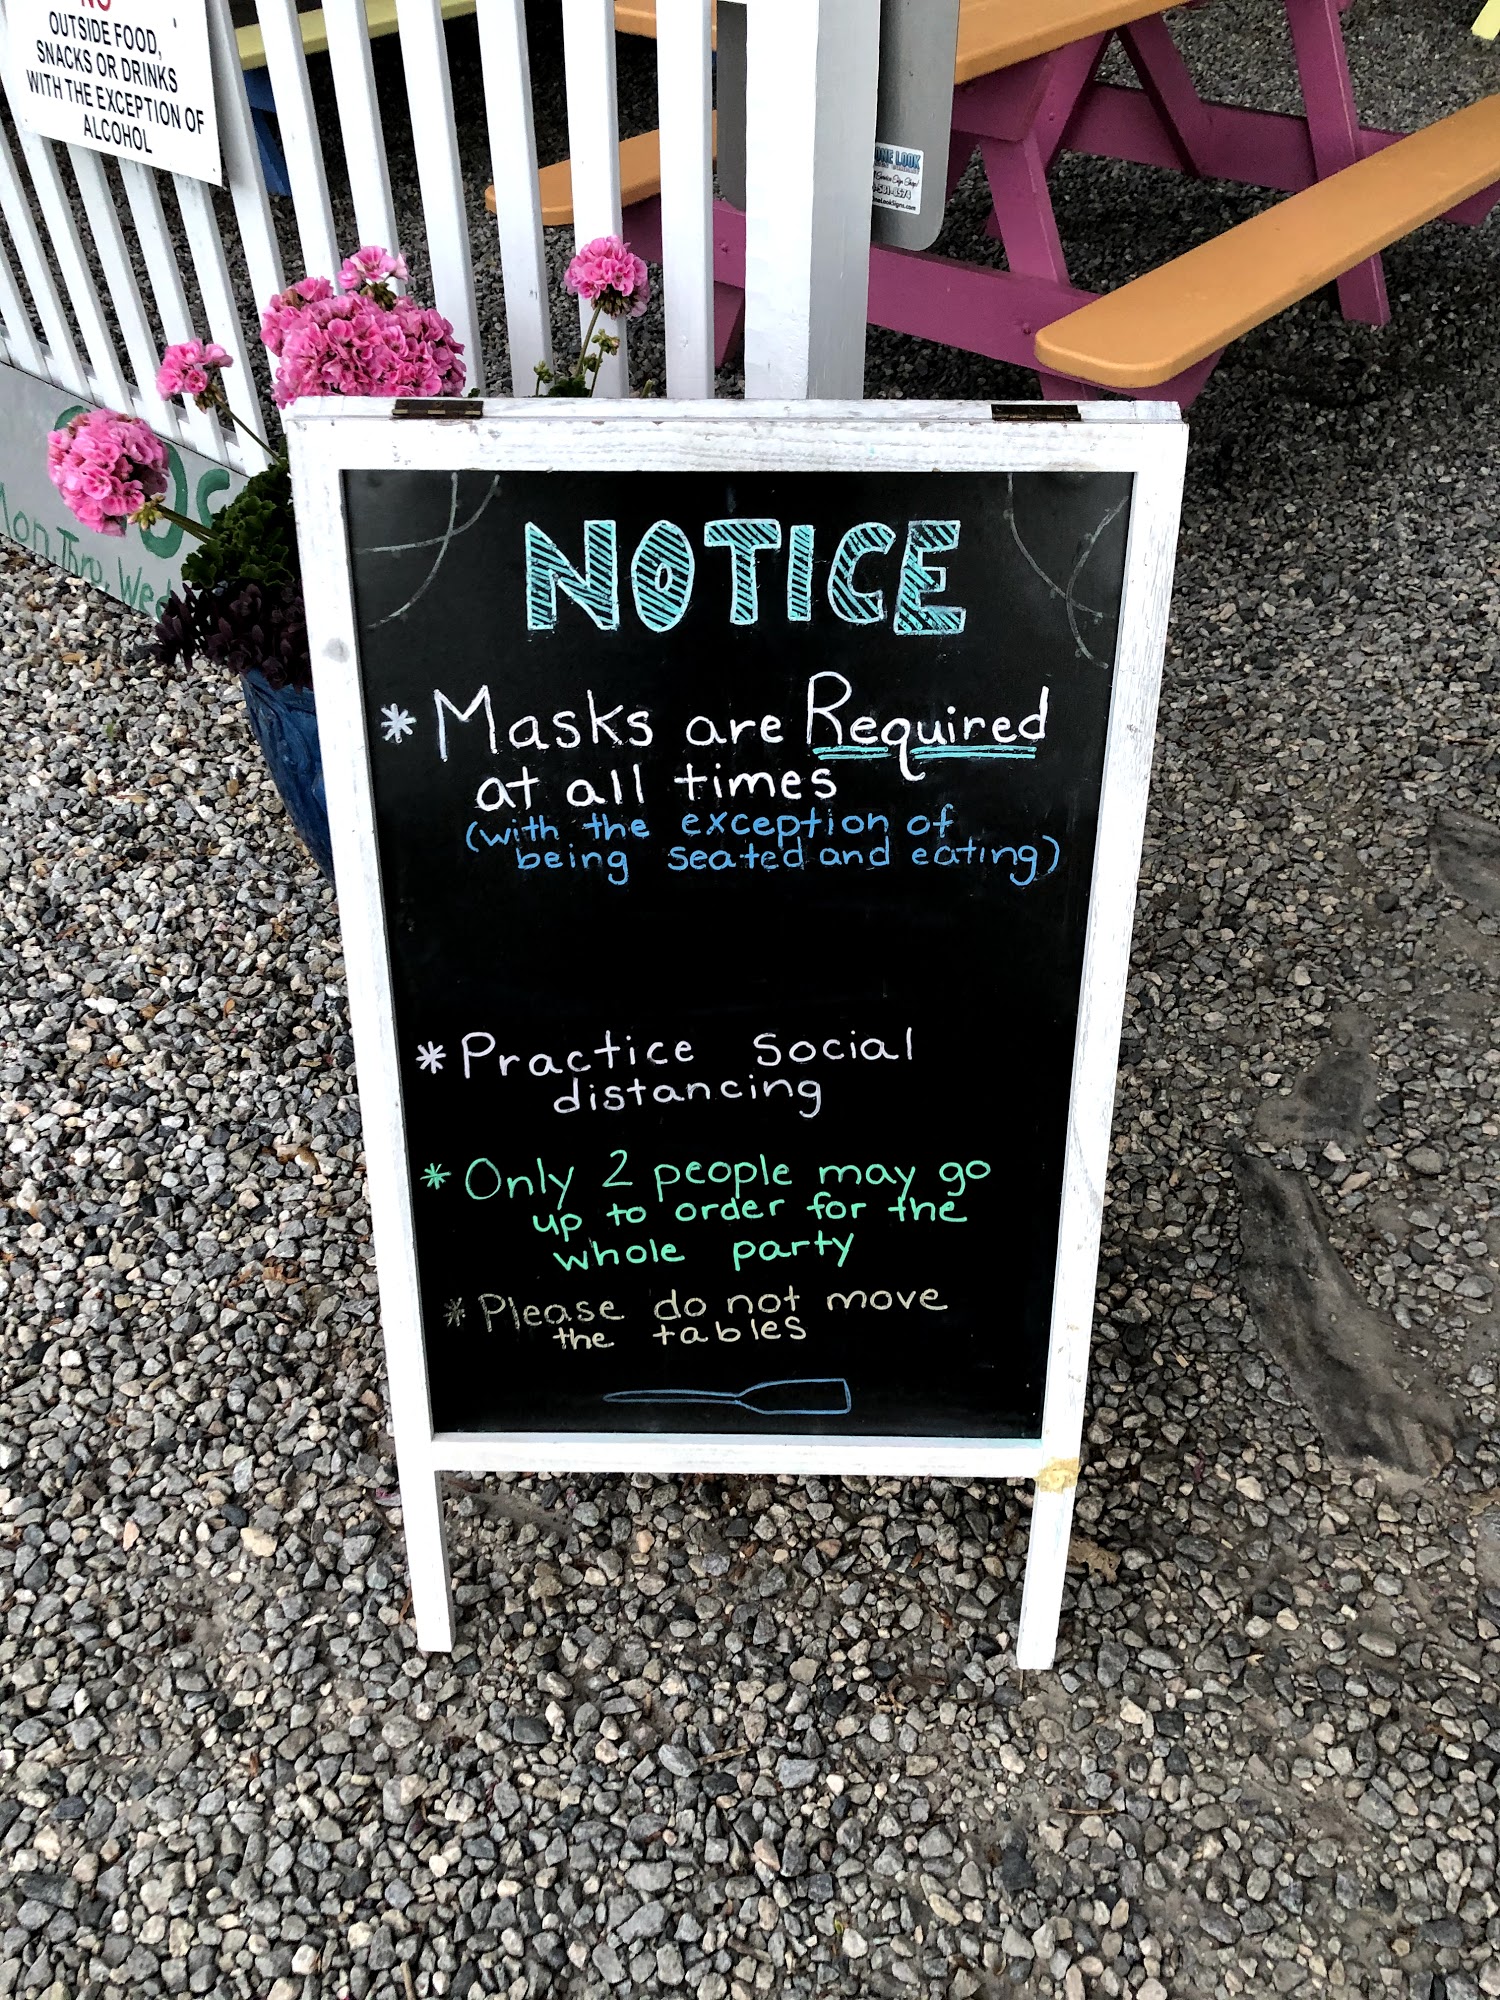 NO
OUTSIDE FOOD,
SNACKS OR DRINKS
WITH THE EXCEPTION OF
ALCOHOL
ONE LOOK
OneLookSigns.com
Mon, Thru, Wed
NOTICE
* Masks are Required
at all times
(with the exception of
being seated and eating)
* Practice social
distancing
* Only 2 people may go
up to order for the
whole party
* Please do not move
the tables